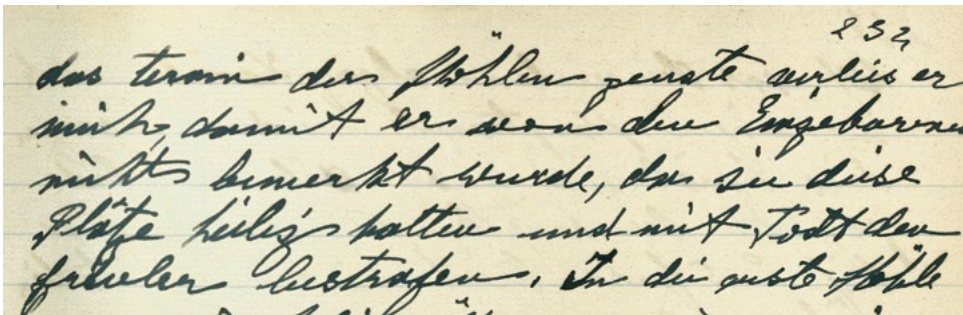 232
das terain der Höhlen zeugte verlies er
mich, damit er von den Eingebarenen
nichts bemerkt wurde, das sie diese
Plätze heilig halten und mit Todt den
freveler bestrafen. In die erste Höhle